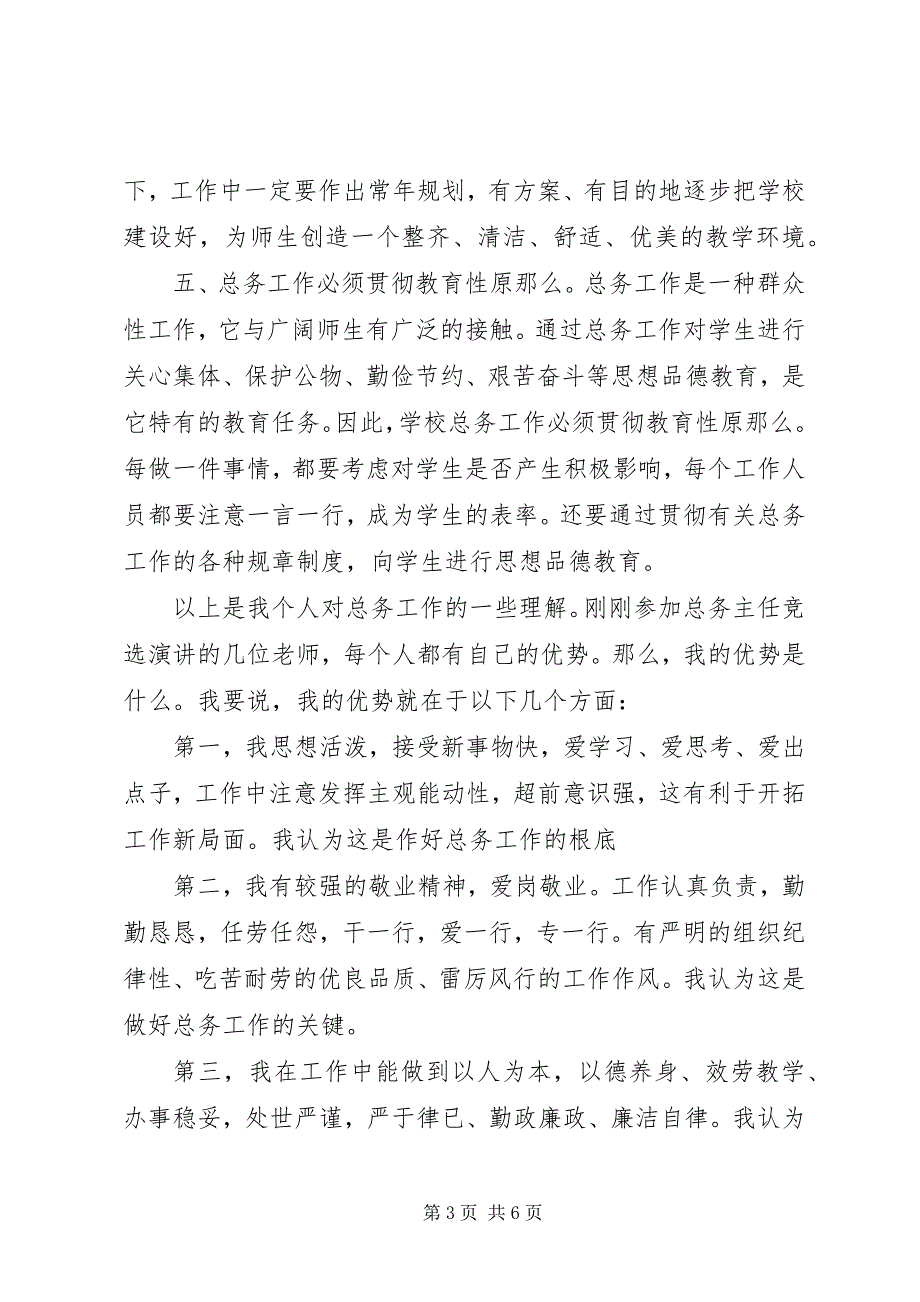 下，工作中一定要作出常年规划，有方案、有目的地逐步把学校
建设好，为师生创造一个整齐、清洁、舒适、优美的教学环境。
五、总务工作必须贯彻教育性原那么。总务工作是一种群众
性工作，它与广阔师生有广泛的接触。通过总务工作对学生进行
关心集体、保护公物、勤俭节约、艰苦奋斗等思想品德教育，是
它特有的教育任务。因此，学校总务工作必须贯彻教育性原那么。
每做一件事情，都要考虑对学生是否产生积极影响，每个工作人
员都要注意一言一行，成为学生的表率。还要通过贯彻有关总务
工作的各种规章制度，向学生进行思想品德教育。
以上是我个人对总务工作的一些理解。刚刚参加总务主任竞
选演讲的几位老师，每个人都有自己的优势。那么，我的优势是
什么。我要说，我的优势就在于以下几个方面：
第一，我思想活泼，接受新事物快，爱学习、爱思考、爱出
点子，工作中注意发挥主观能动性，超前意识强，这有利于开拓
工作新局面。我认为这是作好总务工作的根底
第二，我有较强的敬业精神，爱岗敬业。工作认真负责，勤
勤恳恳，任劳任怨，干一行，爱一行，专一行。有严明的组织纪
律性、吃苦耐劳的优良品质、雷厉风行的工作作风。我认为这是
做好总务工作的关键。
第三，我在工作中能做到以人为本，以德养身、效劳教学、
办事稳妥，处世严谨，严于律已、勤政廉政、廉洁自律。我认为
第 3 页 共 6 页